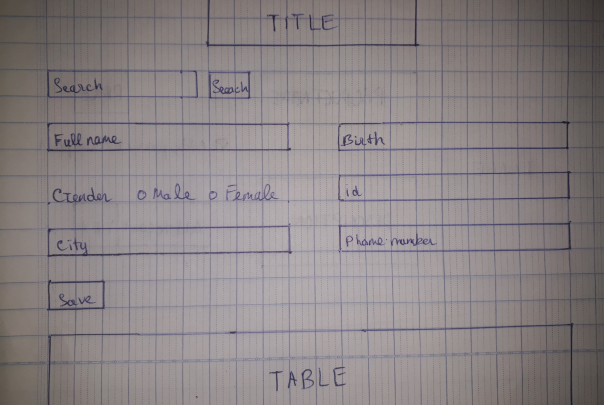 TITLE
Search Seach
Full name Birth
Gender o Male o Female id
City Phame number
Save
TABLE